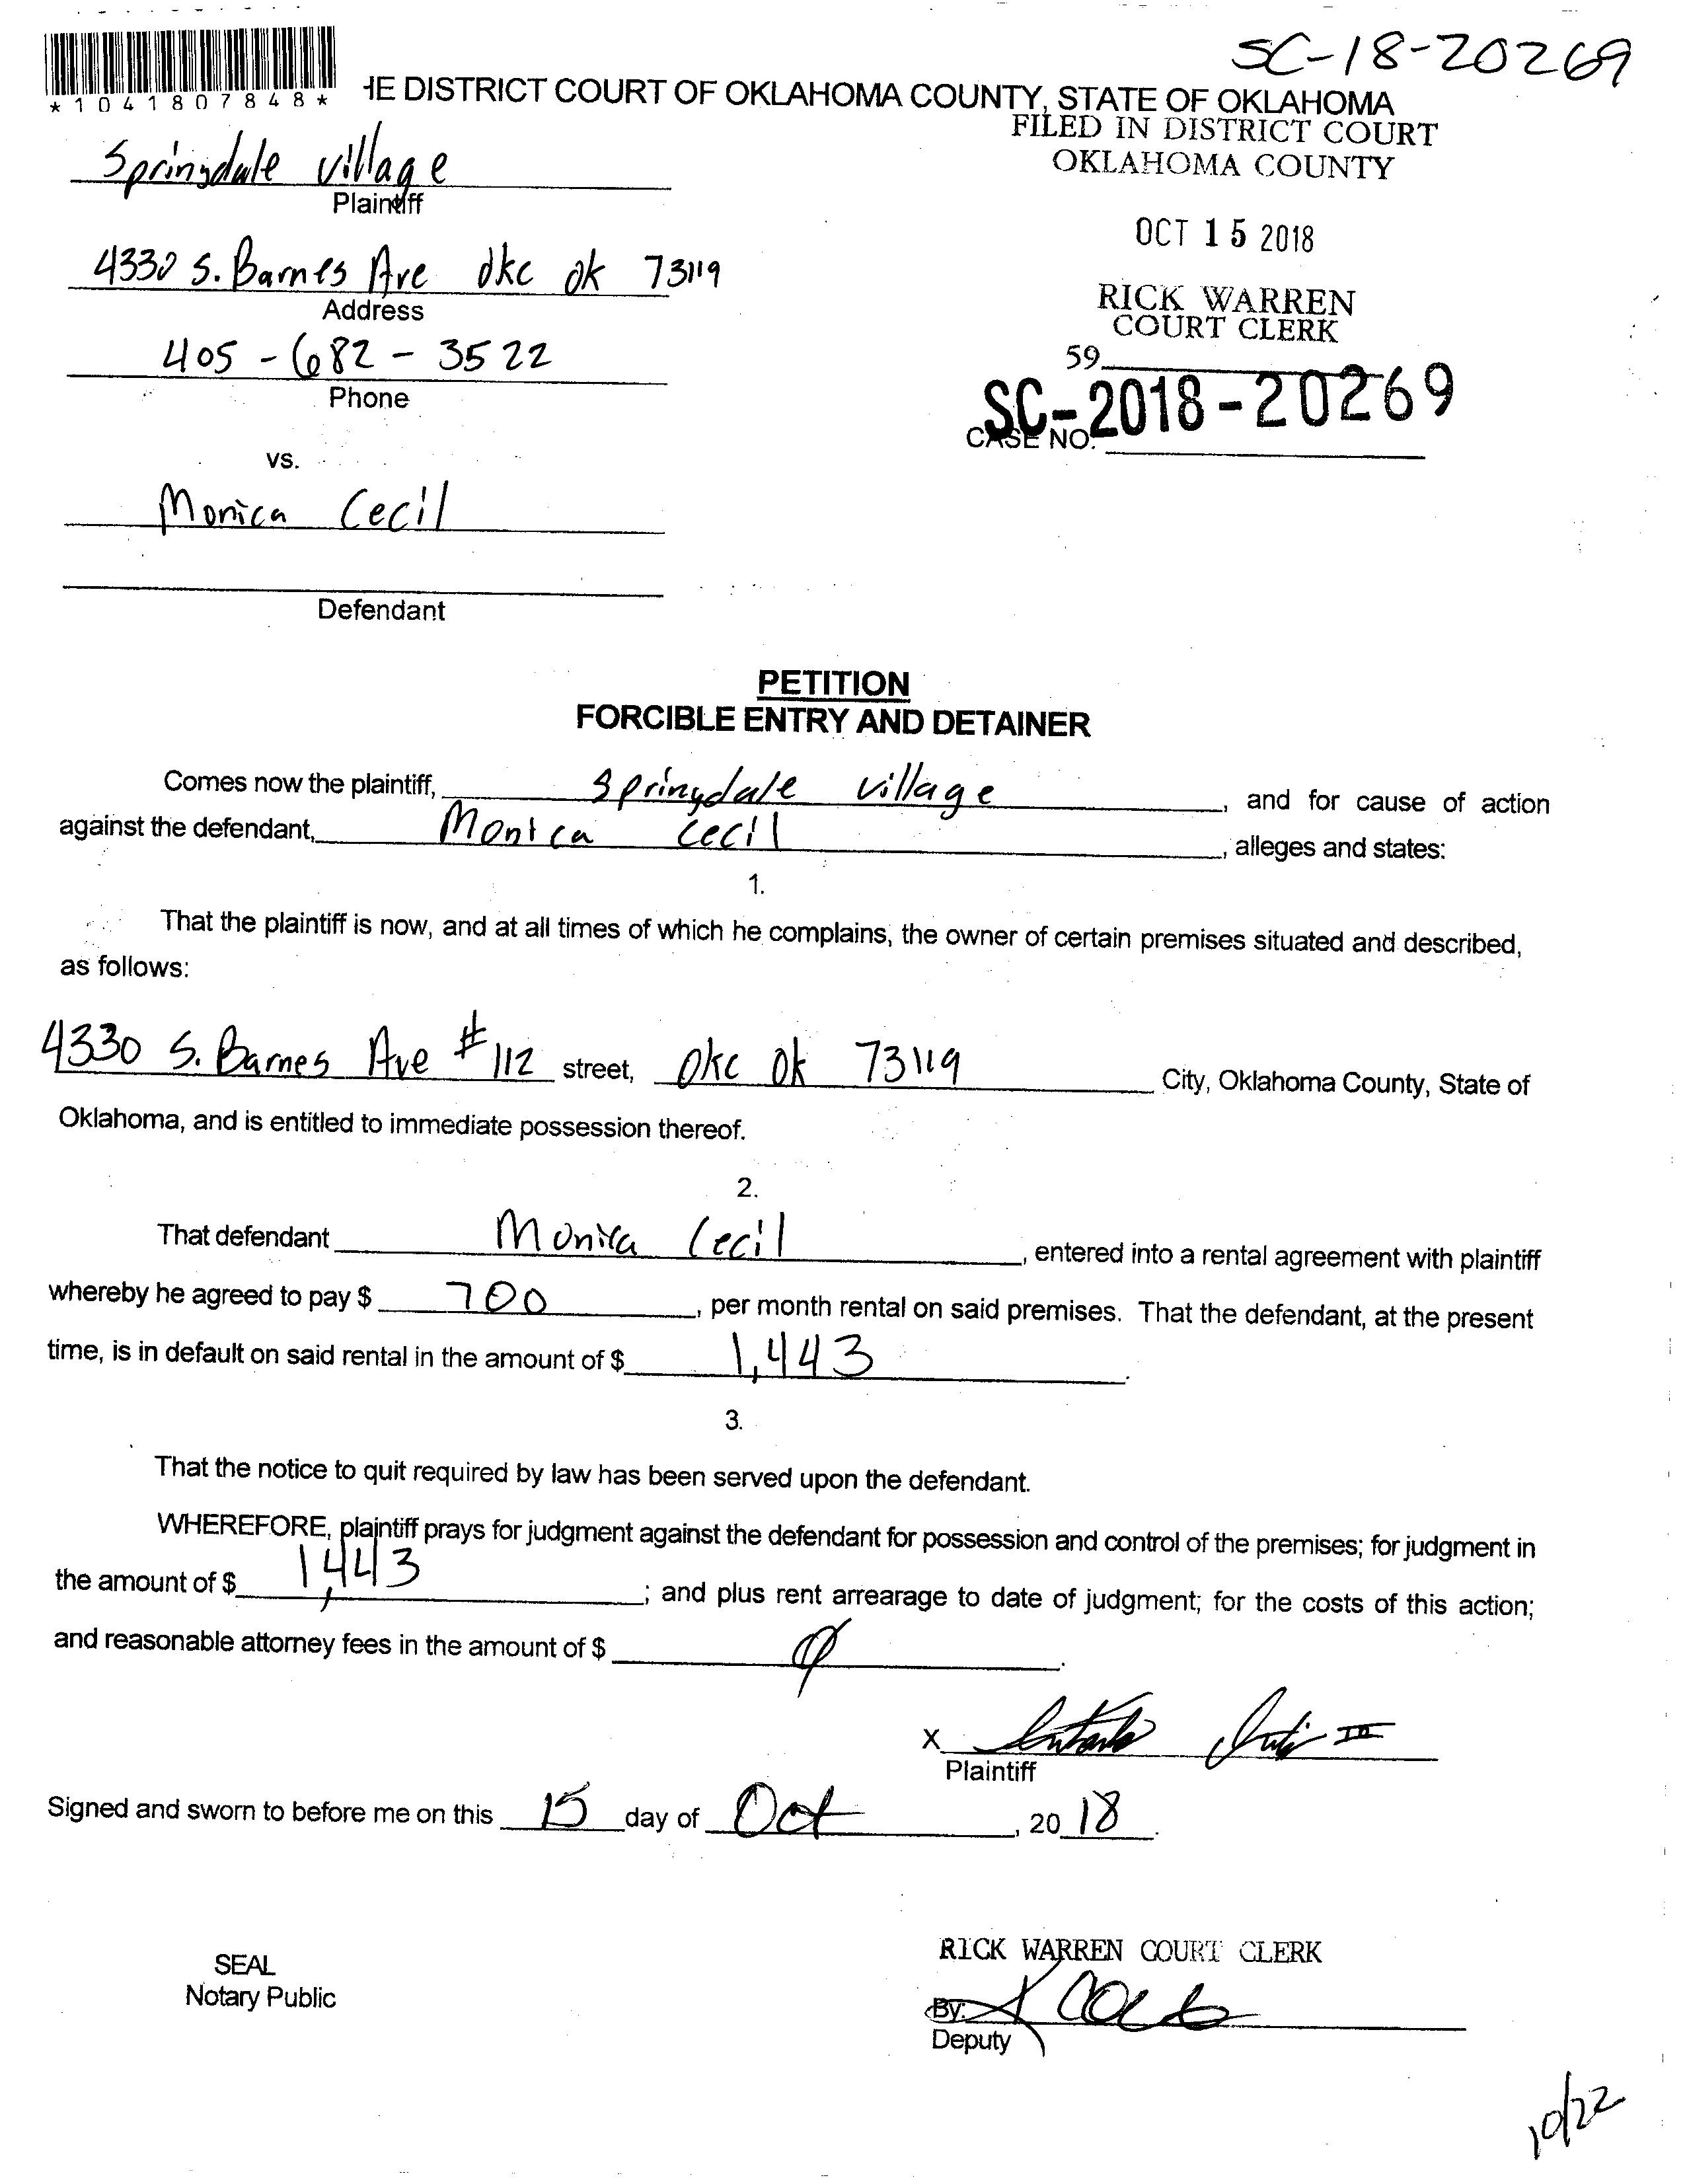 SC-18-20269
*1041807848*
HE DISTRICT COURT OF OKLAHOMA COUNTY, STATE OF OKLAHOMA
FILED IN DISTRICT COURT
OKLAHOMA COUNTY
Springdale village
Plaintiff
OCT 15 2018
4330 S. Barnes Ave okc ok 73119
Address
RICK WARREN
COURT CLERK
405-682-3522
Phone
59
SC-2018-20269
CASE NO.
vs.
Monica Cecil
Defendant
PETITION
FORCIBLE ENTRY AND DETAINER
Comes now the plaintiff, Springdale village, and for cause of action
against the defendant, Monica Cecil, alleges and states:
1.
That the plaintiff is now, and at all times of which he complains, the owner of certain premises situated and described,
as follows:
4330 S. Barnes Ave #112 street, okc ok 73119 City, Oklahoma County, State of
Oklahoma, and is entitled to immediate possession thereof.
2.
That defendant Monica Cecil, entered into a rental agreement with plaintiff
whereby he agreed to pay $ 700, per month rental on said premises. That the defendant, at the present
time, is in default on said rental in the amount of $ 1,443.
3.
That the notice to quit required by law has been served upon the defendant.
WHEREFORE, plaintiff prays for judgment against the defendant for possession and control of the premises; for judgment in
the amount of $ 1,443; and plus rent arrearage to date of judgment; for the costs of this action;
and reasonable attorney fees in the amount of $ Ø.
X III
Plaintiff
Signed and sworn to before me on this 15 day of Oct, 2018.
SEAL
Notary Public
RICK WARREN COURT CLERK
By:
Deputy
10/22